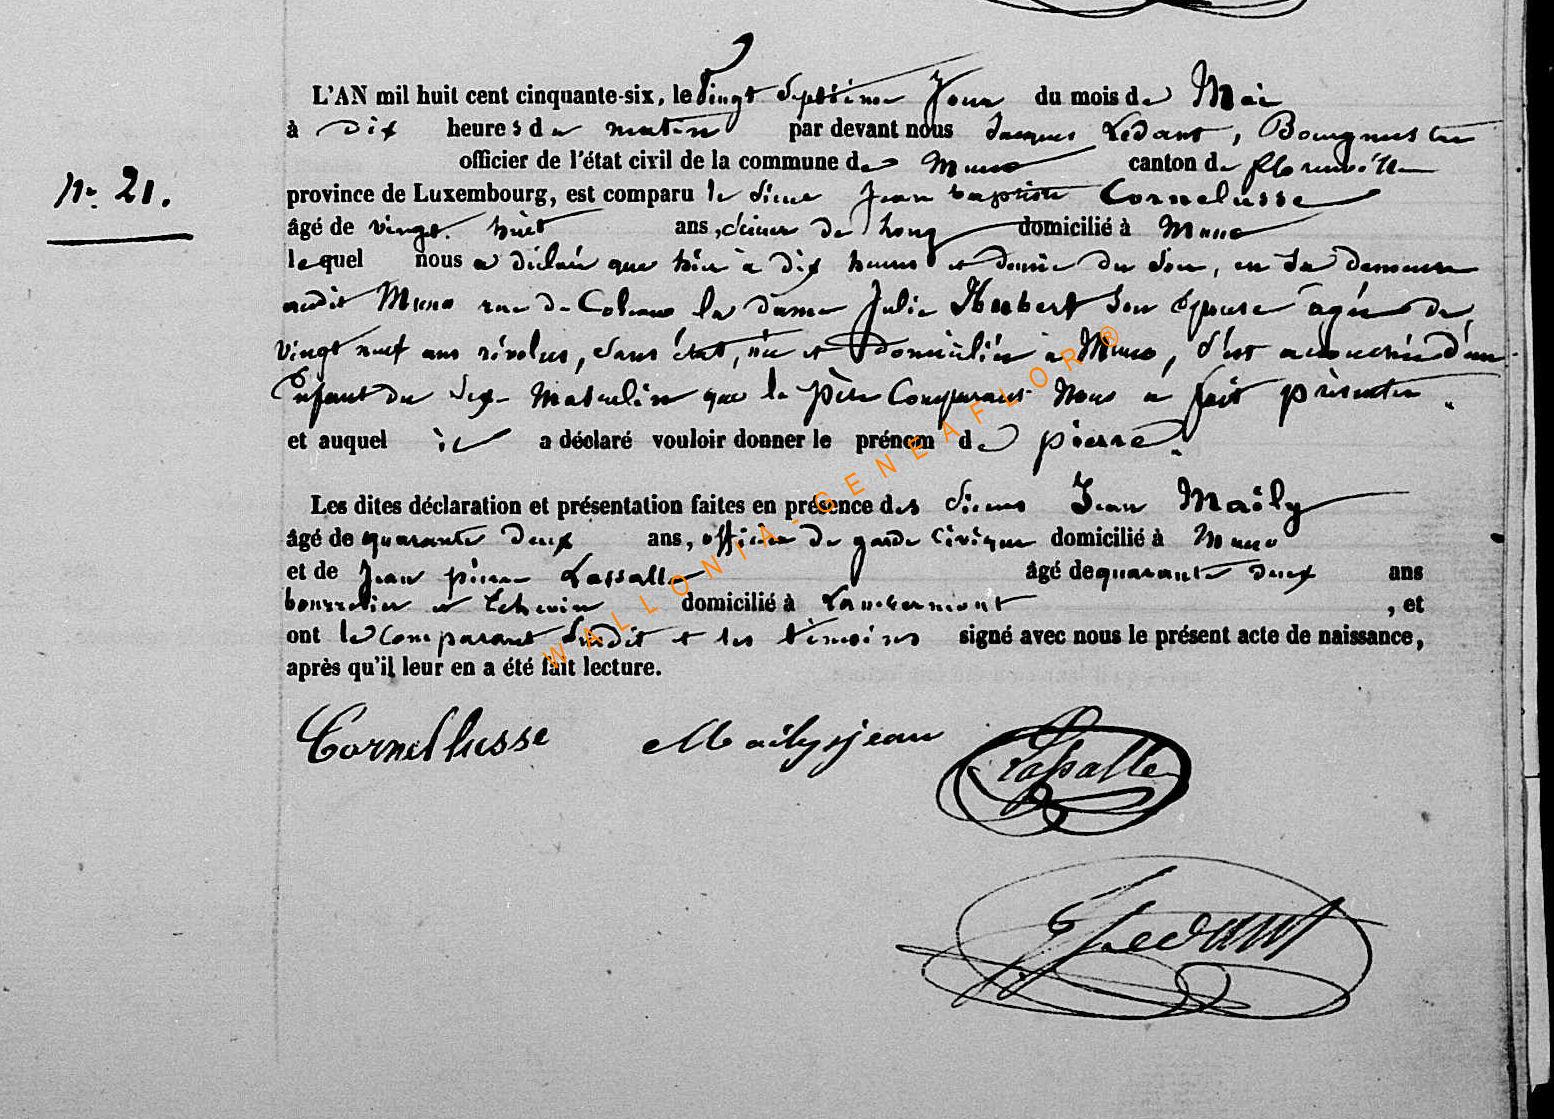 L'AN mil huit cent cinquante-six, le vingt Septième Jour du mois de Mai
à Dix heures du matin par devant nous Jacques Ledant, Bourgmestre
officier de l'état civil de la commune de Muno canton de florenville
N° 21.
province de Luxembourg, est comparu le Sieur Jean baptiste Cornelusse
âgé de vingt huit ans, scieur de long domicilié à Muno
lequel nous a déclaré que hier à dix heures et demie du Soir, en Sa demeure
audit Muno rue de la dame Julie Herbert Son épouse agée de
vingt neuf ans révolus, Sans état, née et Domiciliée à Muno, S'est accouchée d'un
Enfant du Sexe Masculin que le père Comparant Nous a fait présenter.
et auquel il a déclaré vouloir donner le prénom de pierre.
Les dites déclaration et présentation faites en présence des Sieurs Jean Maily
âgé de quarante deux ans, officier de garde Civique domicilié à Muno
et de Jean pierre Lassalle âgé de quarante deux ans
bourrelier et Echevin domicilié à Lambermont , et
ont le Comparant Susdit et les témoins signé avec nous le présent acte de naissance,
après qu'il leur en a été fait lecture.
WALLONIA-GENEAFLOR®
Cornellusse Maily jean Lassalle
J Ledant